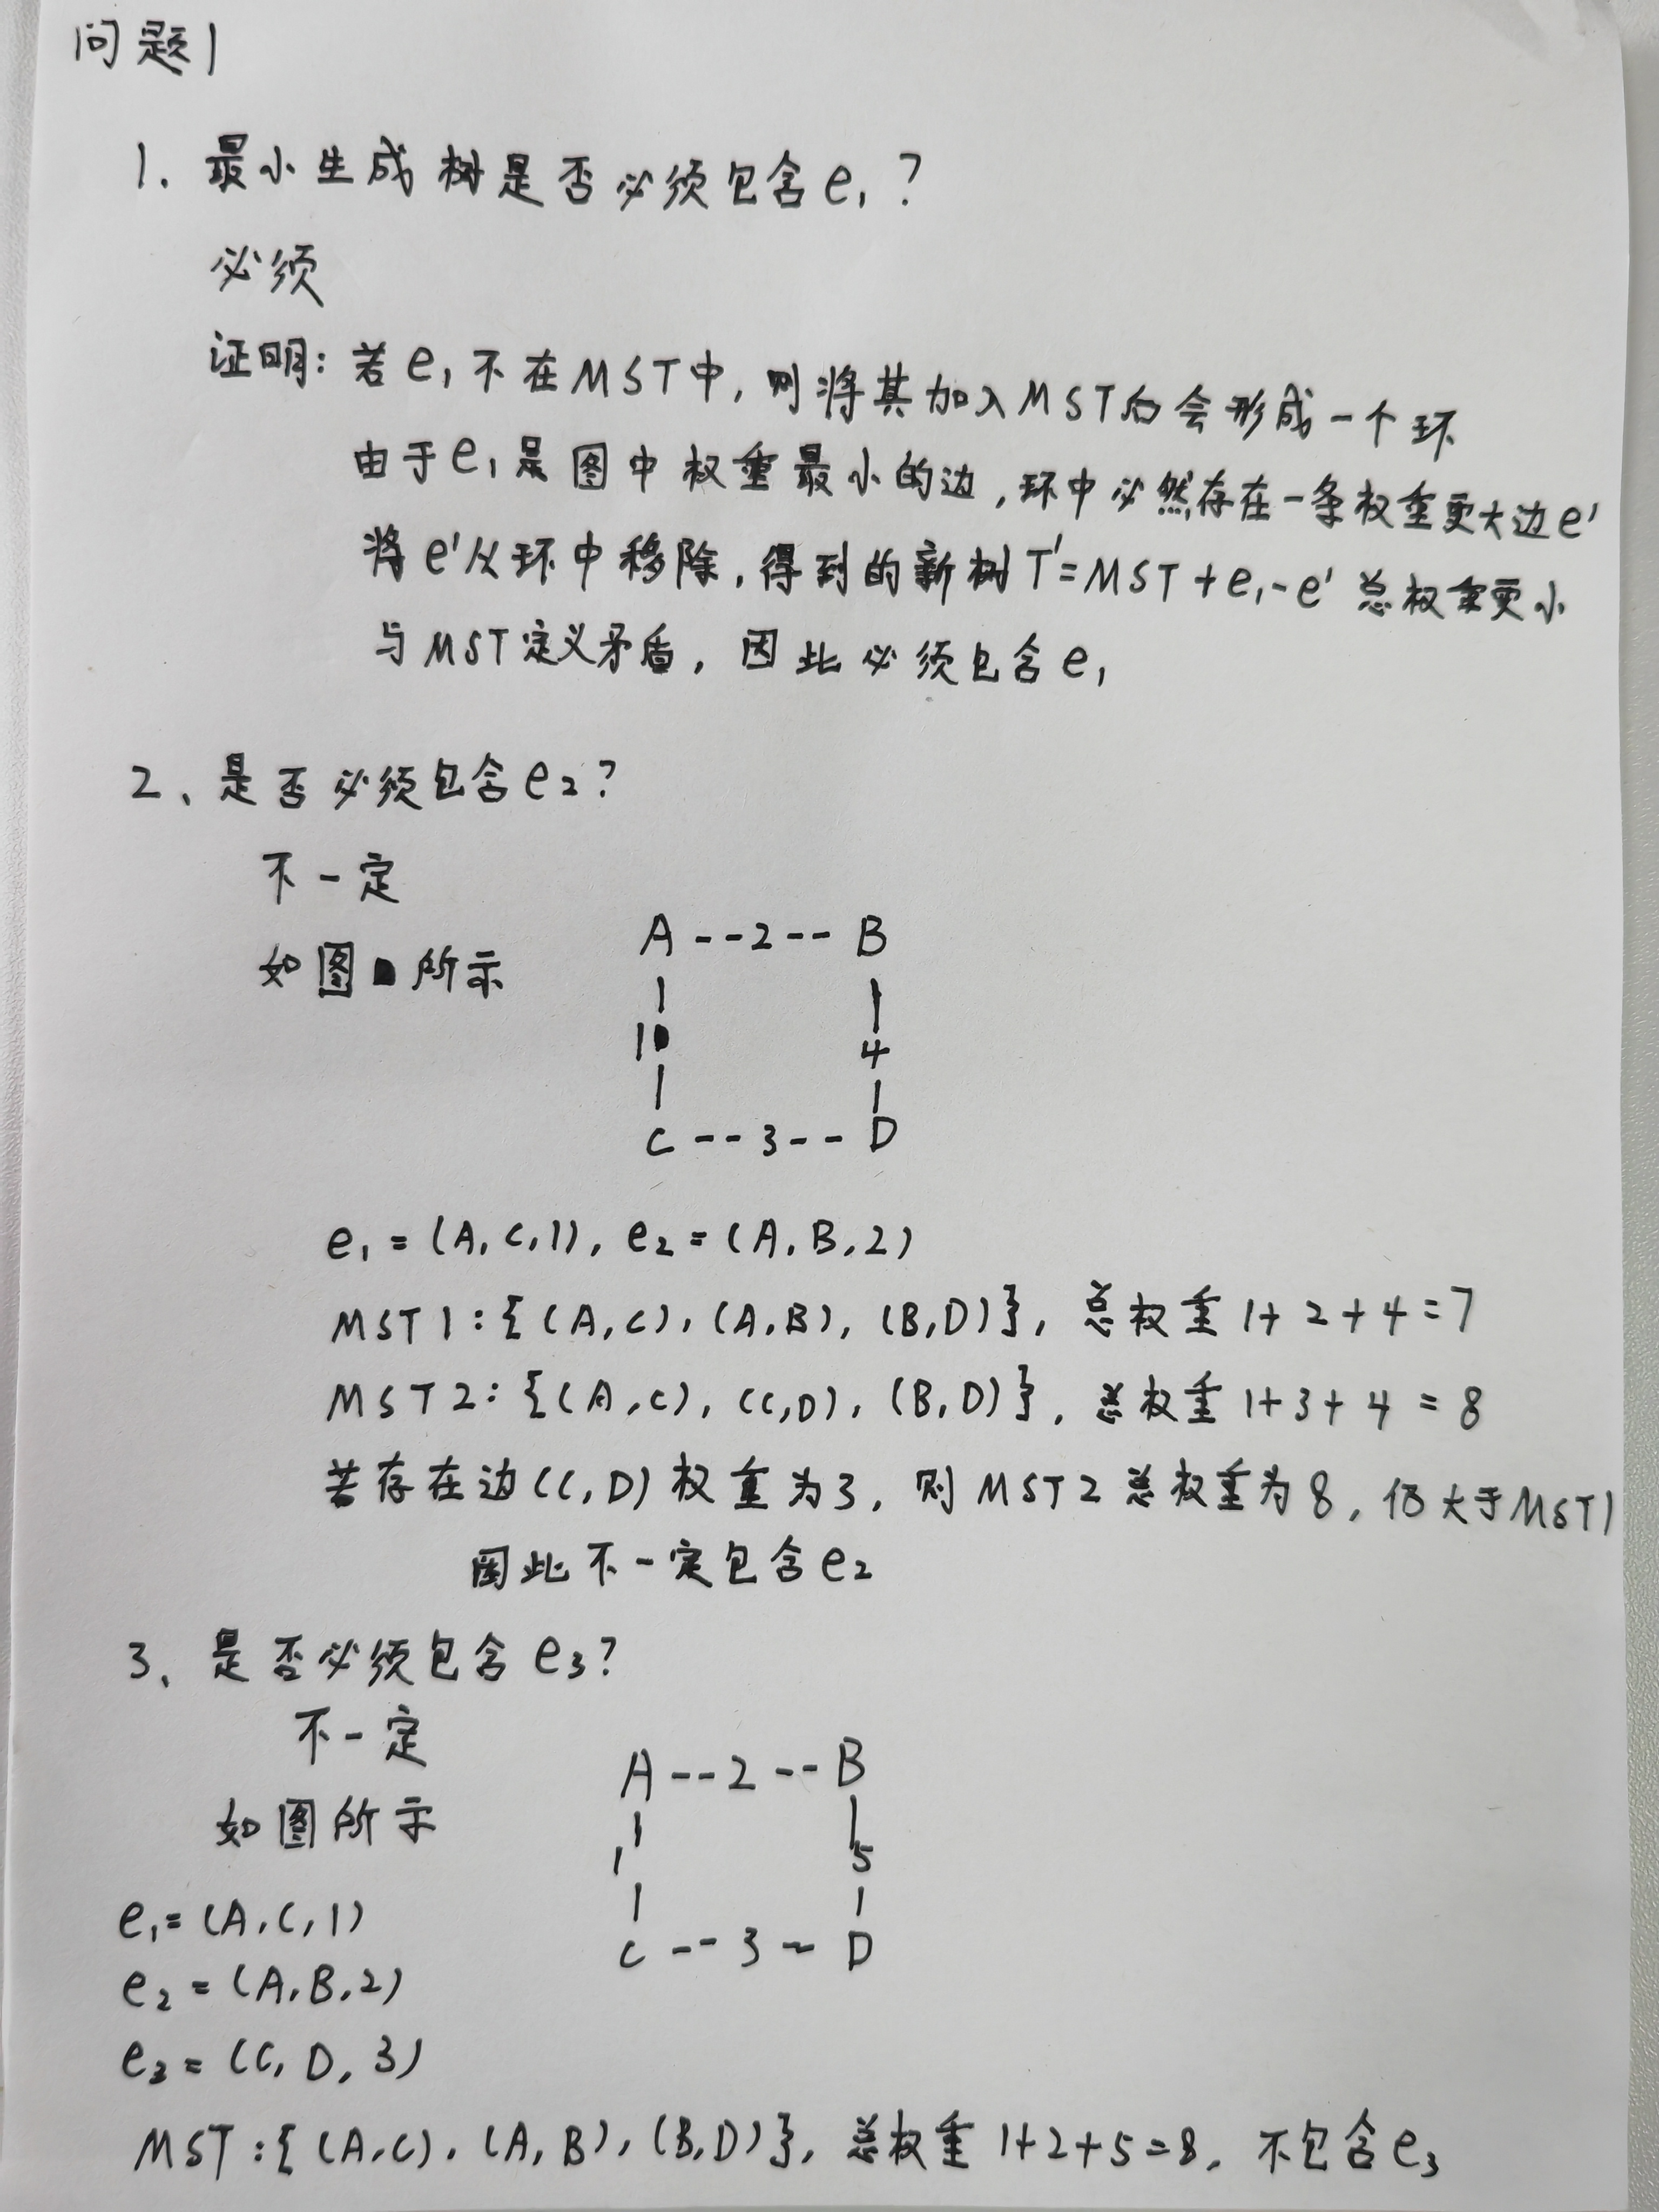 问题1
1. 最小生成树是否必须包含e₁?
必须
证明: 若e₁不在MST中, 则将其加入MST后会形成一个环
由于e₁是图中权重最小的边, 环中必然存在一条权重更大边e'
将e'从环中移除, 得到的新树T'=MST+e₁-e' 总权重更小
与MST定义矛盾, 因此必须包含e₁
2、是否必须包含e₂?
不一定
如图所示
A --2-- B
1 4
C --3-- D
e₁ = (A, C, 1), e₂ = (A, B, 2)
MST1: {(A,C), (A,B), (B,D)}, 总权重1+2+4=7
MST2: {(A,C), (C,D), (B,D)}, 总权重1+3+4=8
若存在边(C,D)权重为3, 则MST2总权重为8, 仍大于MST1
因此不一定包含e₂
3、是否必须包含e₃?
不一定
如图所示
A --2-- B
1 5
C --3-- D
e₁=(A,C,1)
e₂=(A,B,2)
e₃=(C,D,3)
MST: {(A,C), (A,B), (B,D)}, 总权重1+2+5=8, 不包含e₃